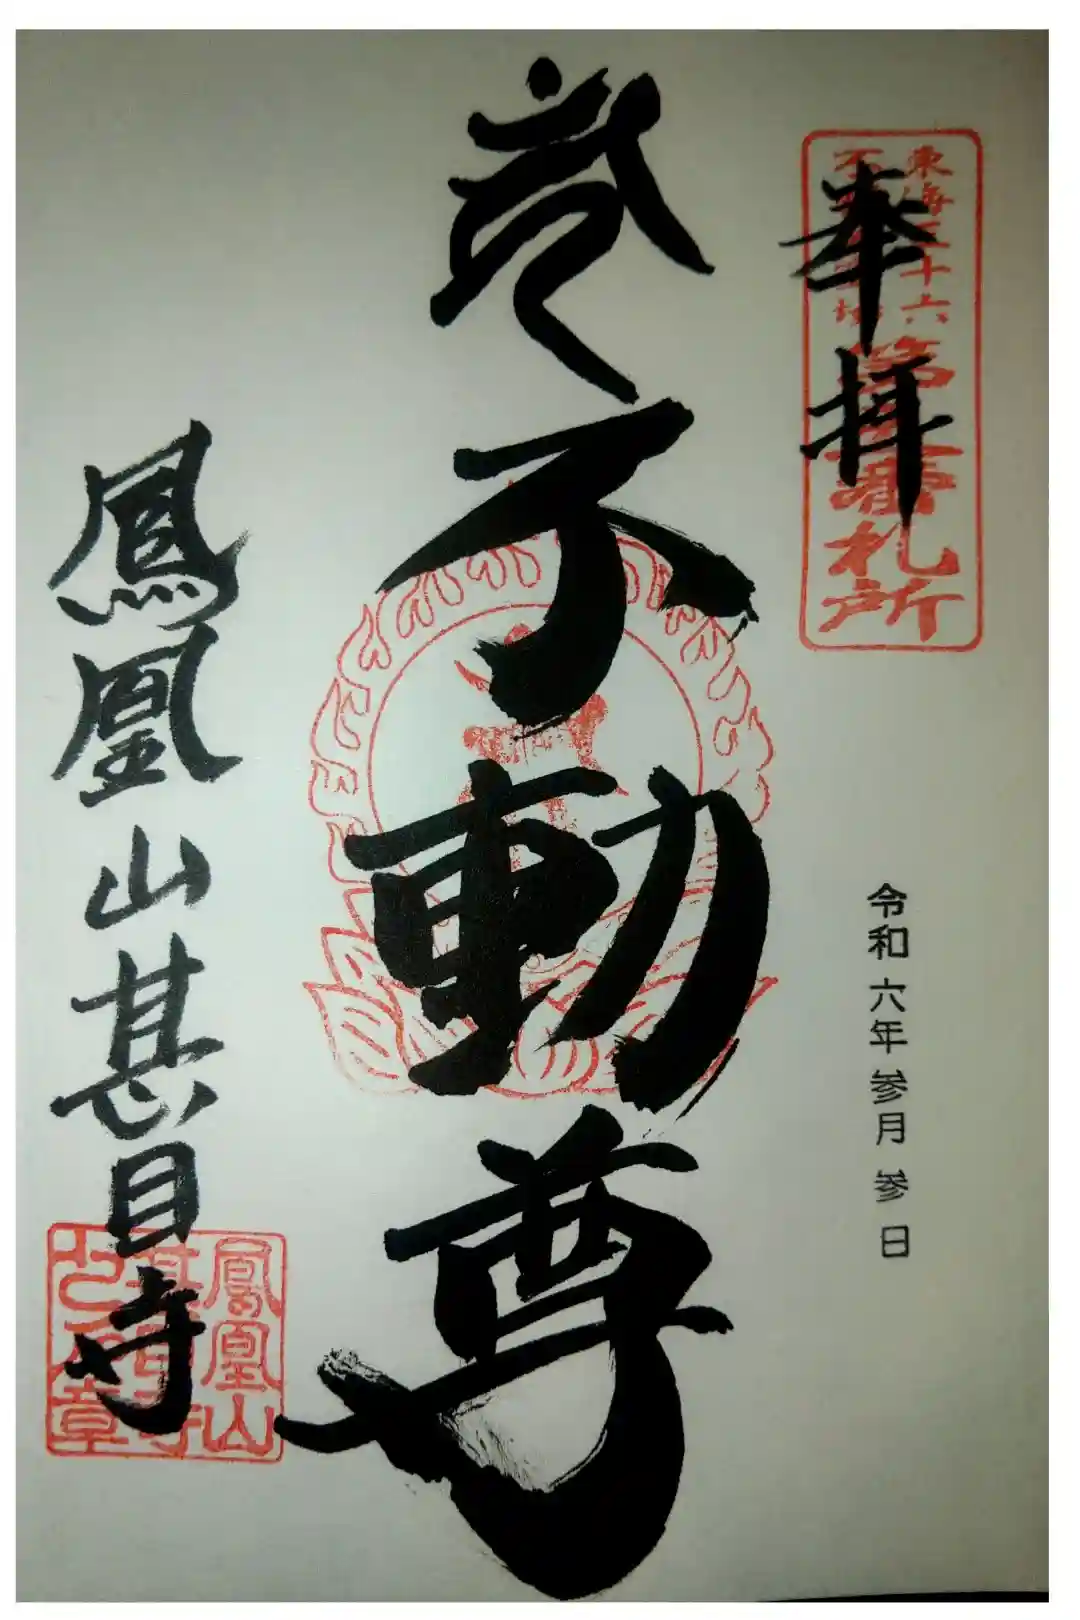 奉拝
東海三十六
不動尊霊場
第三番札所
令和六年参月参日
不動尊
鳳凰山甚目寺
鳳凰山
甚目寺